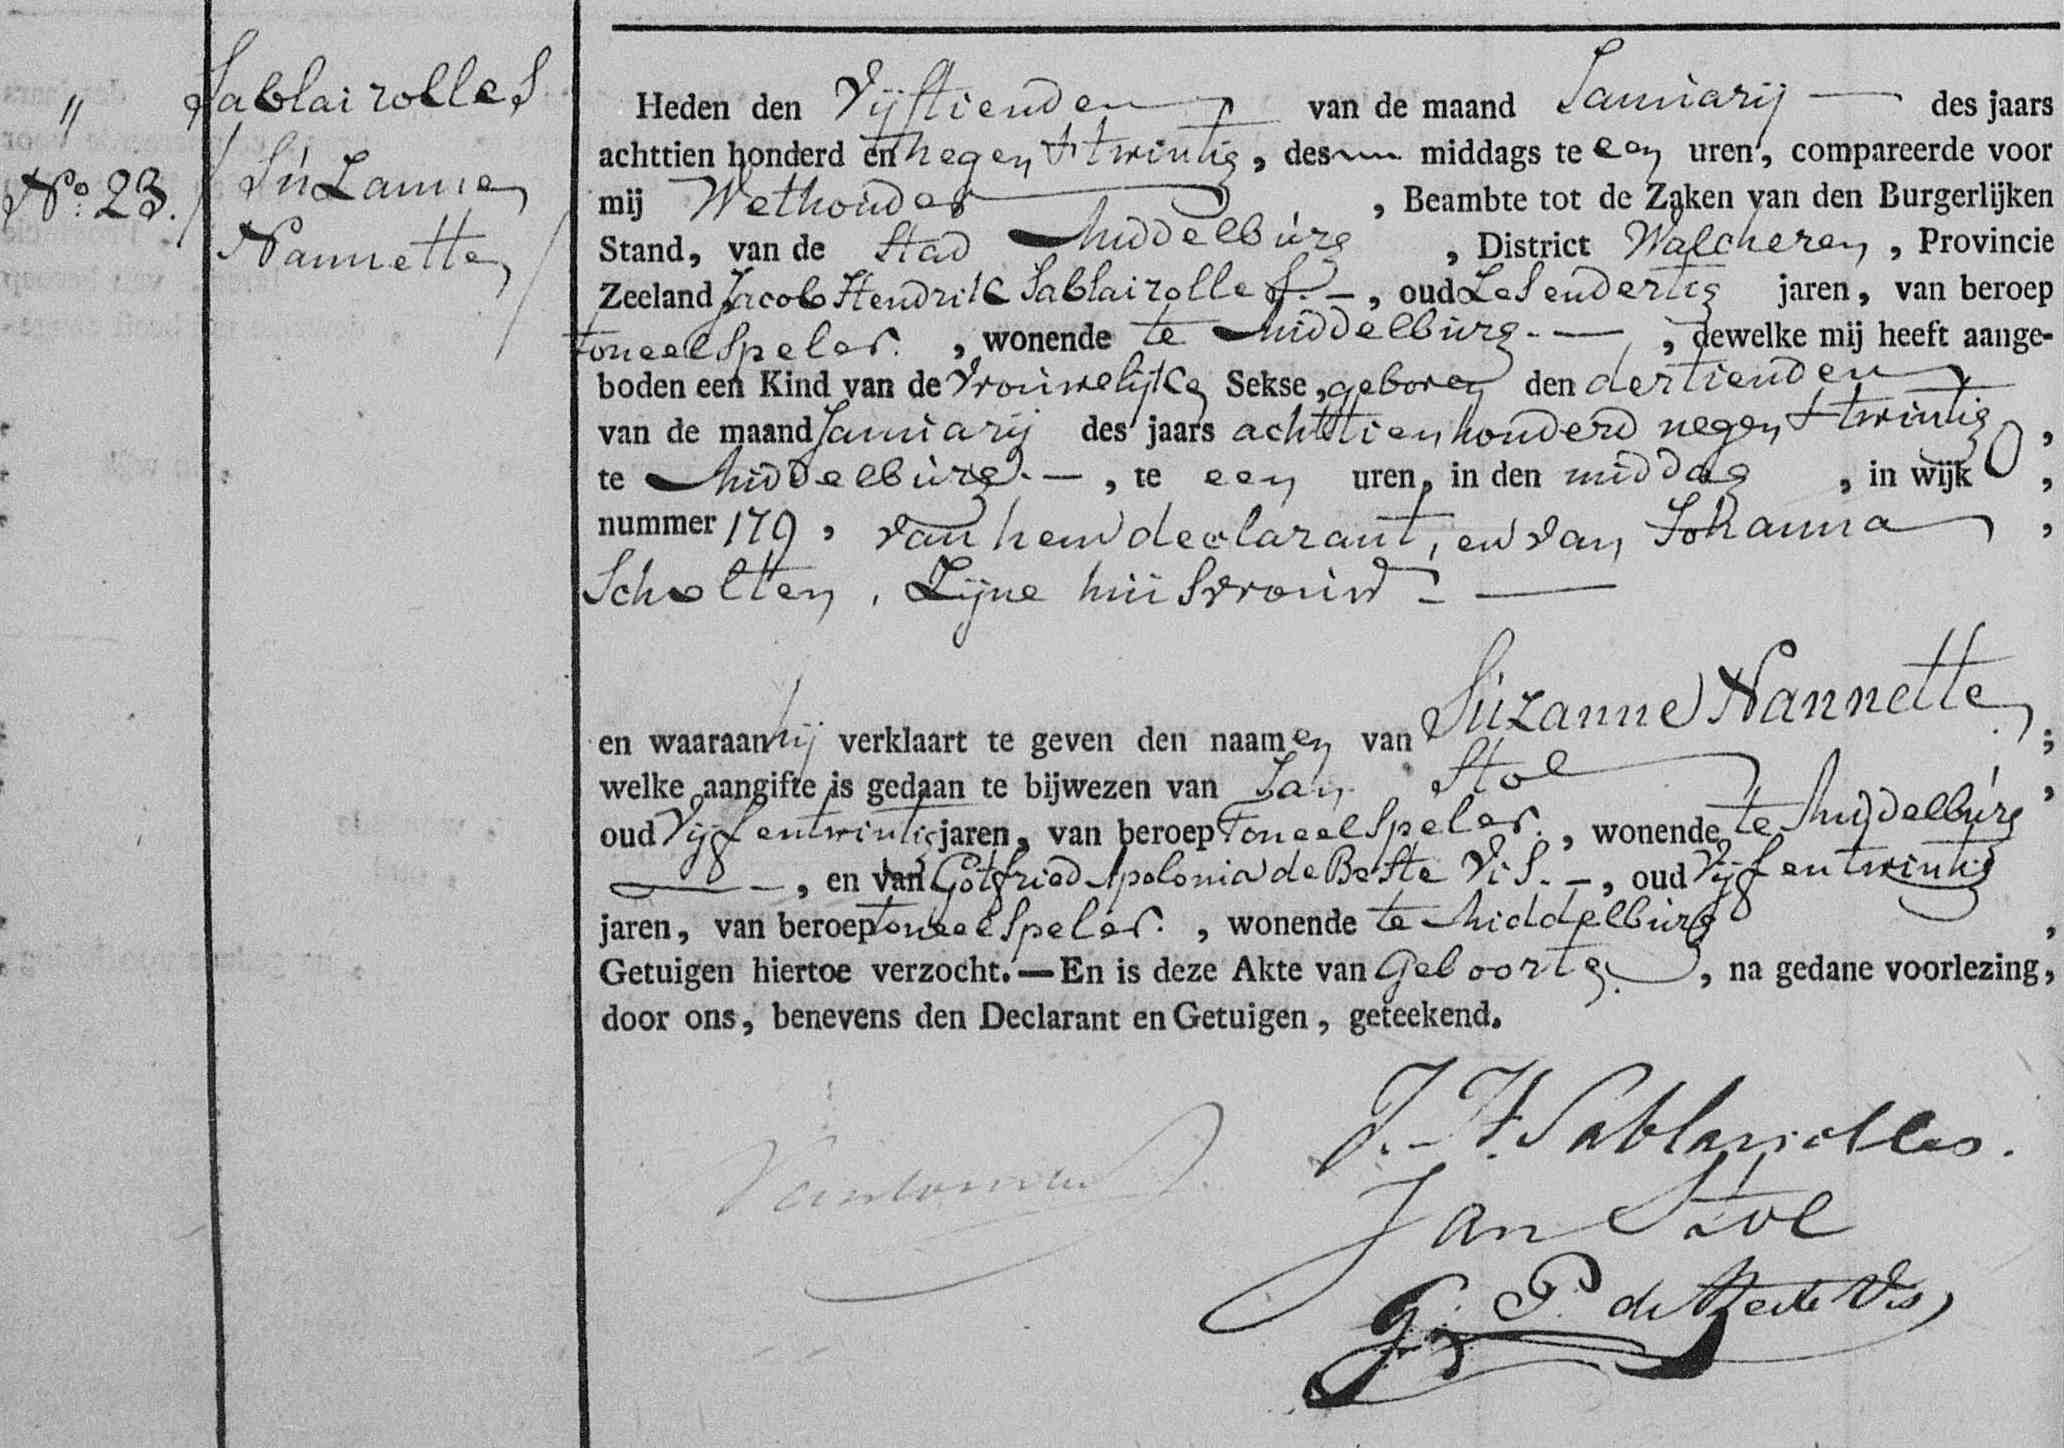 Sablairolles
"
N° 23.
Suzanne
Nannette
Heden den Vijftienden van de maand Januarij des jaars
achttien honderd en negen & twintig, des middags te een uren, compareerde voor
mij Wethouder, Beambte tot de Zaken van den Burgerlijken
Stand, van de Stad Middelburg, District Walcheren, Provincie
Zeeland Jacob Hendrik Sablairolles. —, oud Zesendertig jaren, van beroep
toneelspeler., wonende te Middelburg. —, dewelke mij heeft aange-
boden een Kind van de Vrouwelijke Sekse, geboren den dertienden
van de maand Januarij des jaars achttienhonderd negen & twintig,
te Middelburg. —, te een uren, in den middag, in wijk O,
nummer 179, van hem declarant, en van Johanna,
Scholten, Zijne huisvrouw. —
en waaraan hij verklaart te geven den naamen van Suzanne Nannette;
welke aangifte is gedaan te bijwezen van Jan Stoel,
oud Vijfentwintig jaren, van beroep Toneelspeler., wonende te Middelburg
—, en van Gotfried Apolonia de Beste Vis. —, oud Vijfentwintig
jaren, van beroep toneelspeler., wonende te Middelburg,
Getuigen hiertoe verzocht.—En is deze Akte van Geboorte, na gedane voorlezing,
door ons, benevens den Declarant en Getuigen, geteekend.
J. H. Sablairolles.
Jan Stoel
G. P. de Beste Vis